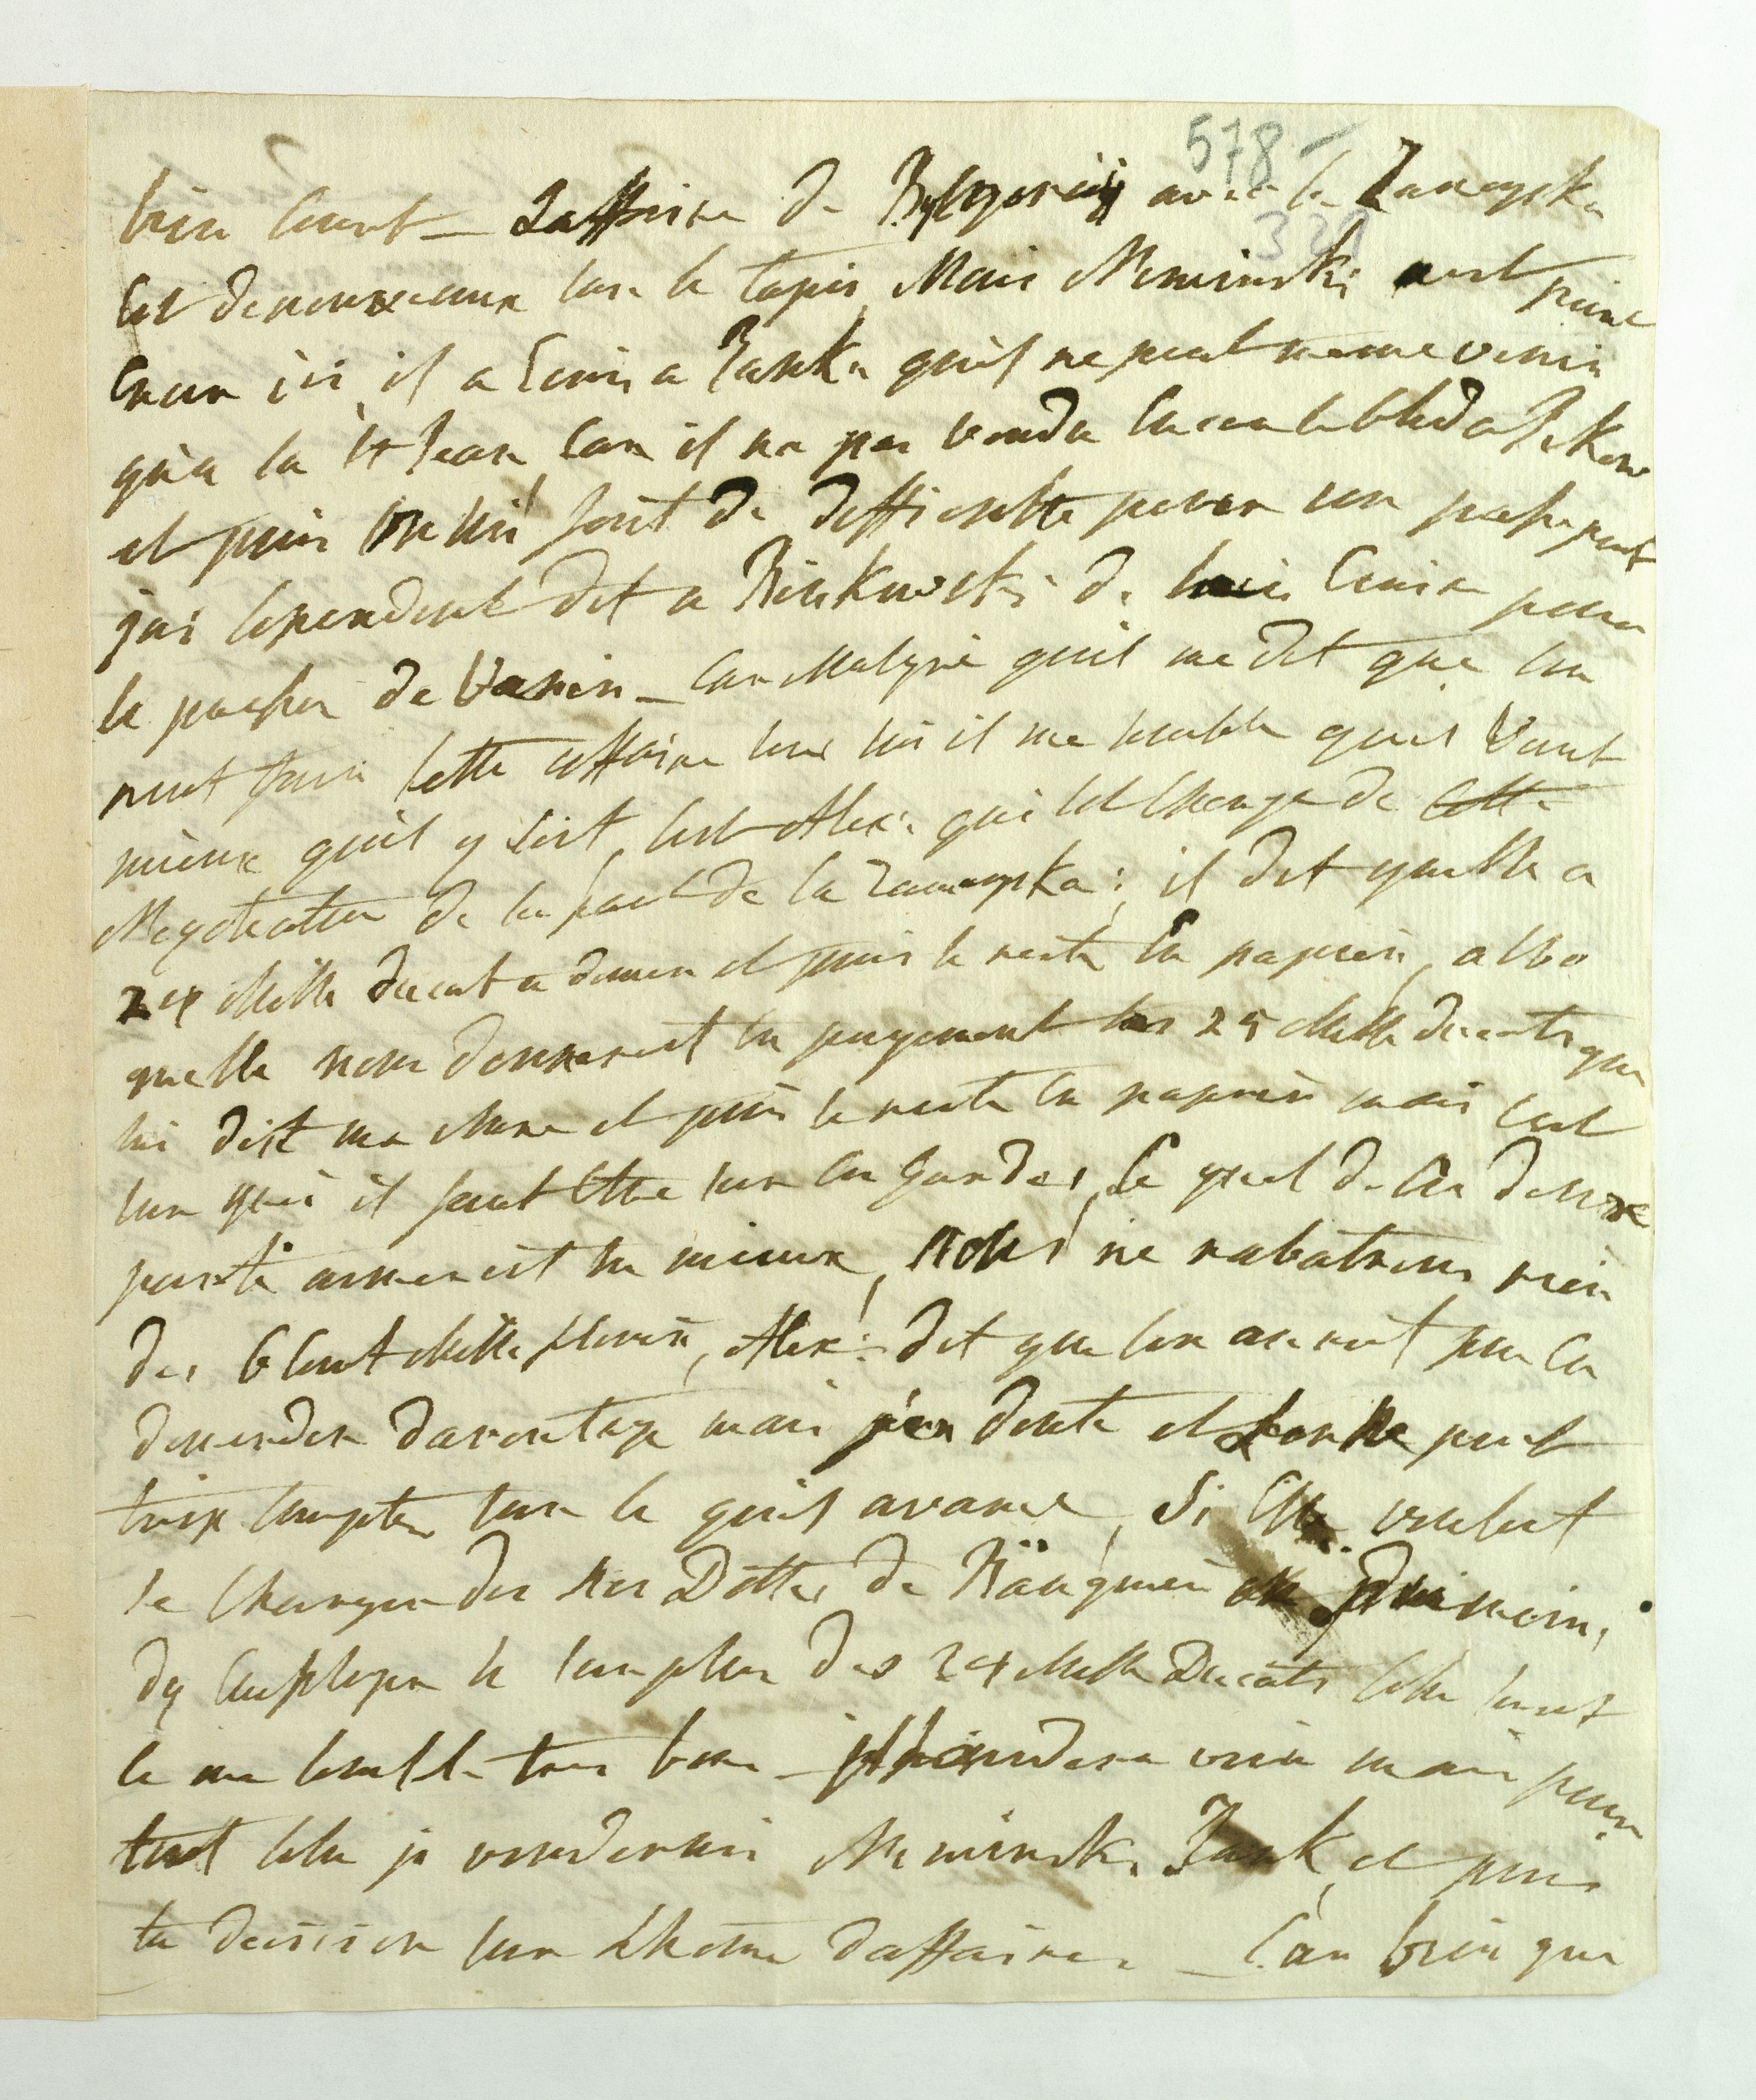 578 -
bien court - Laffaire de Bilgoraij avec la Zamoyska
321
est denouveaux sur le tapis, Mais Neminski nest point
encor ici, il a Ecrit a Zank. quil ne peut meme venir
qu'a la St Jean, Car il na pas vendu encore le bled
et puis on lui fait de difficulté pour un passeport
jai cependent dit a Binkowski de lui Ecrire pour
le presser de Venir - Car Malgré quil me dit que lon
peut finir cette affaire sans lui il me semble quil Vaut
mieux quil y soit, cest Alex: qui est Chargé de cette
Negotiation de la part de la Zamoyska; il dit quelle a
24 Mille ducat a donner et puis le reste en papiers, albo
quelle nous donnerait en payement les 25 Mille ducats que
lui doit ma Mere et puis le reste en papiers mais cest
sur quoi il faut Etre sur ces gardes, le quel de ces deux
partis aimerait tu mieux, Nous ne rabatrons rien
des 6 Cent Mille florins, Alex: dit que lon aurait pu en
demander davantage mais j'en doute et lon ne peut
trop compter sur ce quil avance, Si Elle voulait
se Charger des nos Dettes de au moins,
dy Employer le surplus des 24 Mille Ducats cela serait
ce me semble tres bon - viendra mais pour
tout cela je vouderais Neminski Zank, et puis
ta decision sur L'homme daffaires - Car bien que